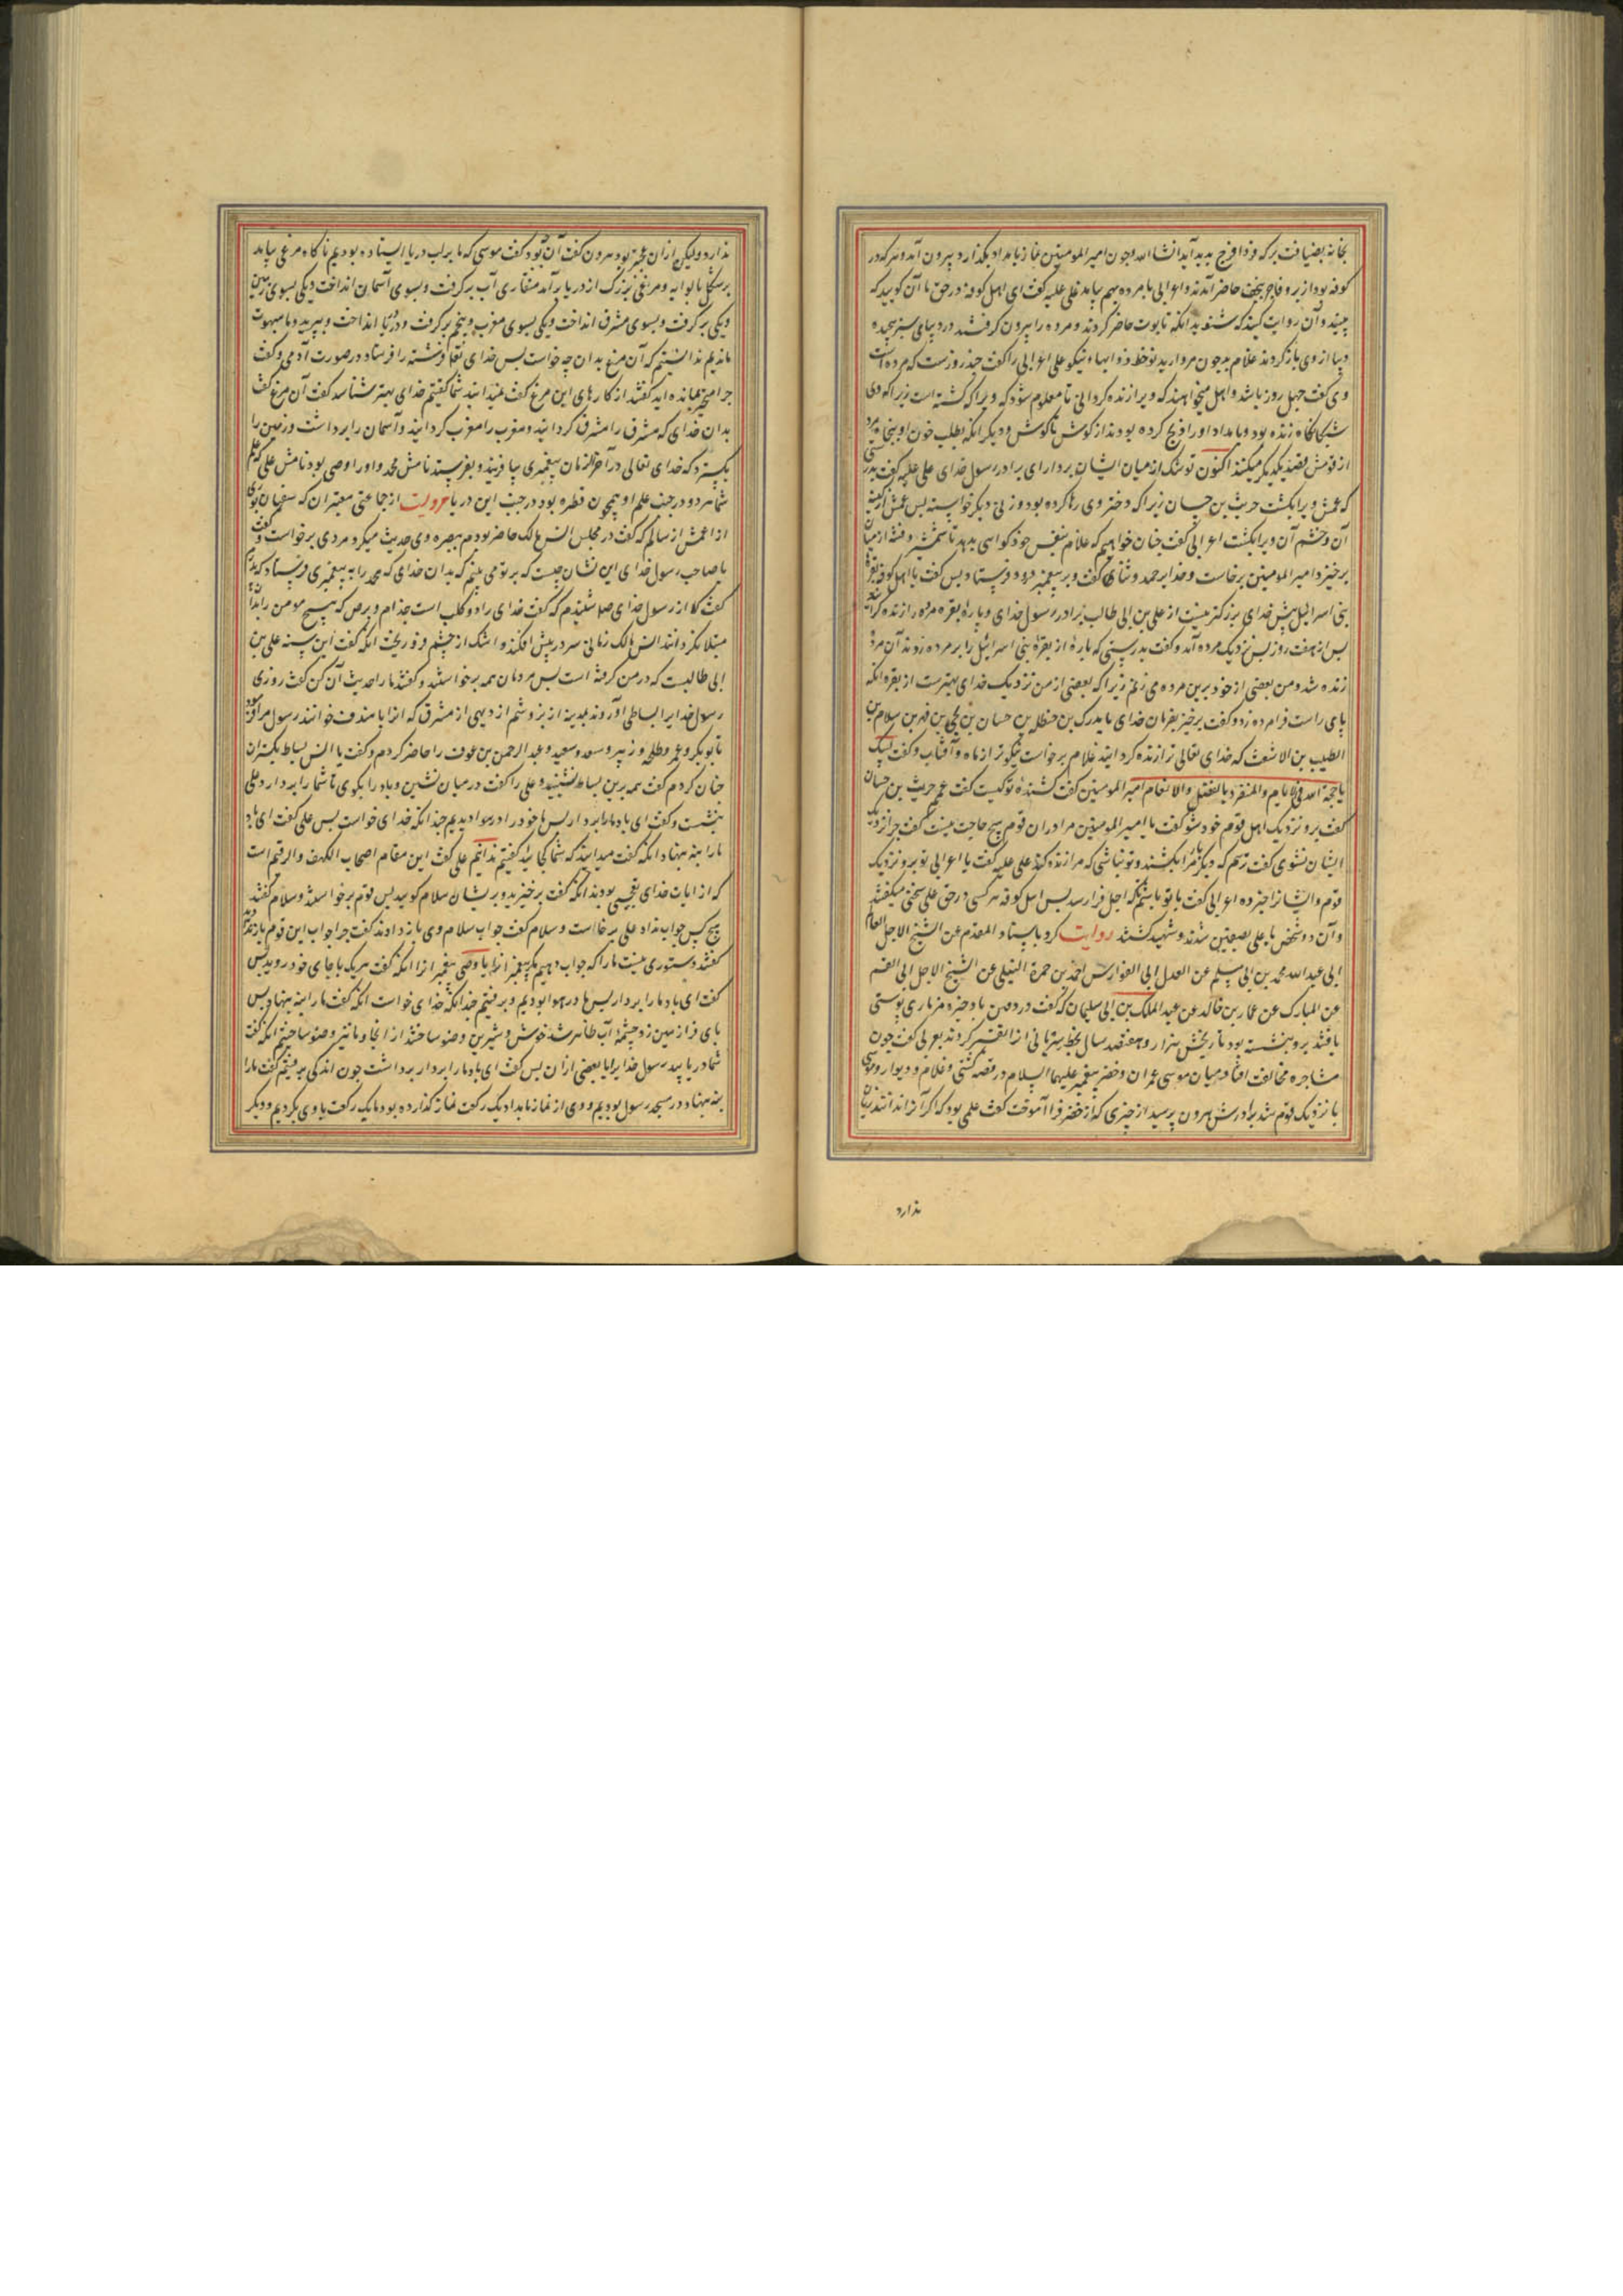 بخانه بضیافت بر که فردا فرج پدید آید انشا الله چون امیر المومنین نماز بامداد بگذارد بیرون آمد و هر که در
کوفه بود از بر و فاجر بنجف حاضر آمدند و اعرابی با مرده بهم بیامد علی علیه گفت ای اهل کوفه در حق ما آن گویید که
بینید و آن روایت کنید که شنوید آنگه تابوت حاضر کردند و مرده را بیرون گرفتند در دیبای سبز پیچیده
دیبا از وی باز کردند غلام بد چون مروارید نوخط ذوابها نیکو علی اعرابی را گفت چند روزست که مرده است
وی گفت چهل روز باشد و اهل میخواهند که ویرا زنده گردانی تا معلوم شود که ویرا که کشته است زیرا که وی
شبانگاه زنده بود و بامداد او را ذبح کرده بودند از گوش تا گوش و دیگر آنکه بطلب خون او پنجاه مرد
از قومش قصد یکدیگر میکنند اکنون تو شک از میان ایشان بردار ای برادر رسول خدای علی علیه گفت بدرستی
که عمش ویرا بکشت حریث بن حسان زیرا که دختر وی رها کرده بود و زنی دیگر خواسته پس عمش از کینه
آن و خشم آن ویرا بکشت اعرابی گفت چنان خواهیم که غلام بنفس خود گواهی بدهد تا شمشیر و فتنه از میان
برخیزد امیر المومنین برخاست و خدایرا حمد و ثنا گفت و بر پیغمبر درود فرستاد پس گفت یا اهل کوفه بقره
بنی اسرائیل پیش خدای بزرگتر نیست از علی بن ابی طالب برادر رسول خدای و پاره بقره مرده را زنده کرد
پس از هفت روز پس نزدیک مرده آمد و گفت بدرستی که پاره از بقرهٔ بنی اسرائیل را بر مرده زدند آن مرده
زنده شد و من بعضی از خود برین مرده می زنم زیرا که بعضی از من نزدیک خدای بهترست از بقره آنگه
پای راست فرا مرده زد و گفت برخیز بفرمان خدای یا مدرک بن حنظله بن حسان بن یحیی بن فهر بن سلام بن
الطیب بن الاشعث که خدای تعالی ترا زنده گردانید غلام برخواست نیکوتر از ماه و آفتاب و گفت لبیک
یا حجة الله فی الانام والمنفرد بالفضل والانعام امیر المومنین گفت کشندهٔ تو کیست گفت عم حریث بن حسان
گفت برو نزدیک اهل قوم خود شو گفت یا امیر المومنین مرا در آن قوم هیچ حاجت نیست گفت چرا نزدیک
ایشان نشوی گفت ترسم که دیگر بار مرا بکشند و تو نباشی که مرا زنده کند علی علیه گفت یا اعرابی تو برو نزدیک
قوم و ایشانرا خبر ده اعرابی گفت با تو باشم تا که اجل فرا رسد پس اهل کوفه هر کسی در حق علی سخنی میگفتند
و آن دو شخص با علی بصفین شدند و شهید گشتند روایت کرد باسناد المقدم عن الشیخ الاجل العالم
ابی عبد الله محمد بن ابی مسلم عن العدل ابی الفوارس احمد بن حمزة النیلی عن الشیخ الاجل ابی القسم
عن المبارک عن عمار بن خالد عن عبد الملک بن ابی سلیمان که گفت در
یافتند برو نبشته بود تاریخش هزار و هفتصد سال بخط سریانی آنرا تفسیر کردند بعربی گفت چون
مشاجره مخالفت افتاد میان موسی عمران و خضر پیغمبر علیهما السلام در قصه کشتی و غلام و دیوار و موسی
با نزدیک قوم شد برادرش هرون پرسید از چیزی که از خضر فرا آموخت گفت علمی بود که اگر آنرا ندانند زیان
ندارد
ندارد ولیکن از آن عجبتر بود هرون گفت آن چه بود گفت موسی که ما بر لب دریا ایستاده بودیم ناگاه مرغی بیامد
بر شکل تابوایه و مرغی بزرگ از دریا برآمد منقاری آب برگرفت و بسوی آسمان انداخت و یکی بسوی زمین
و یکی برگرفت و بسوی مشرق انداخت و یکی بسوی مغرب و پنجم برگرفت و در دریا انداخت و بپرید و ما مبهوت
ماندیم ندانستیم که آن مرغ بدان چه خواست پس خدای تعالی فرشته را فرستاد در صورت آدمی و گفت
چرا متحیر بمانده اید گفتند از کارهای این مرغ گفت نمیدانید شما گفتیم خدای بهتر شناسد گفت آن مرغ گفت
بدان خدای که مشرق را مشرق گردانید و مغرب را مغرب گردانید و آسمان را برداشت و زمین را
بگسترد که خدای تعالی در آخر الزمان پیغمبری بیافریند و بفرستد نامش محمد و او را وصی بود نامش علی که علم
شما هر دو در جنب علم او همچون قطره بود در جنب این دریا روایت از جماعتی معتبران که سفیان ثوری
از اعمش از سالم که گفت در مجلس انس مالک حاضر بودم ببصره و وی حدیث میکرد مردی برخواست و گفت
یا صاحب رسول خدای این نشان چیست که بر تو می بینم که بدان خدای که محمد را به پیغمبری فرستاد که پدرم
گفت که از رسول خدای صلی شنیدم که گفت خدای راد و کلب است جذام و برص که هیچ مومن را بدان
مبتلا نگرداند انس مالک زمانی سر در پیش افکند و اشک از چشم فرو ریخت آنگه گفت این بسبب علی بن
ابی طالبست که در من گرفته است پس مردمان همه برخواستند و گفتند ما را حدیث آن کن گفت روزی
رسول خدایرا بساطی آوردند هدیه از بز و شم از دیهی از مشرق که آنرا یا مندف خوانند رسول مرا فرمود
تا بوبکر و عمر و طلحه و زبیر و سعد و سعید و عبد الرحمن بن عوف را حاضر کردم و گفت یا انس بساط بگستران
چنان کردم گفت همه برین بساط نشینید و علی را گفت در میان نشین و باد را بگوی تا شما را بردارد علی
بنشست و گفت ای باد ما را بردار پس ما خود را در هوا دیدیم چندانکه خدای خواست پس علی گفت ای باد
ما را بنه بنهاد آنگه گفت میدانید که شما کجا اید گفتیم ندانیم علی گفت این مقام اصحاب الکهف و الرقیم است
که از آیات خدای تعجبی بودند آنگه گفت برخیزید و بریشان سلام گویید پس قوم برخواستند و سلام گفتند
هیچ کس جواب نداد علی برخاست و سلام گفت جواب سلام وی باز دادند گفت چرا جواب این قوم باز ندادید
گفتند دستوری نیست ما را که جواب دهیم مگر پیغمبرانرا یا وصی پیغمبرانرا آنگه گفت هریک با جای خود روید پس
گفت ای باد ما را بردار پس ما در هوا بودیم و برفتیم چندانکه خدای خواست آنگه گفت ما را بنه بنهاد پس
پای فرا زمین زد چشمه آب ظاهر شد خوش و شیرین وضو ساختند از آنجا و ما نیز وضو ساختیم آنگه گفت
شما دریابید رسول خدایرا یا بعضی از آن پس گفت ای باد ما را بردار برداشت چون اندکی برفتیم گفت ما را
بنه بنهاد در مسجد رسول بودیم و وی از نماز بامداد یک رکعت نماز گذارده بود ما یک رکعت با وی بکردیم و دیگر